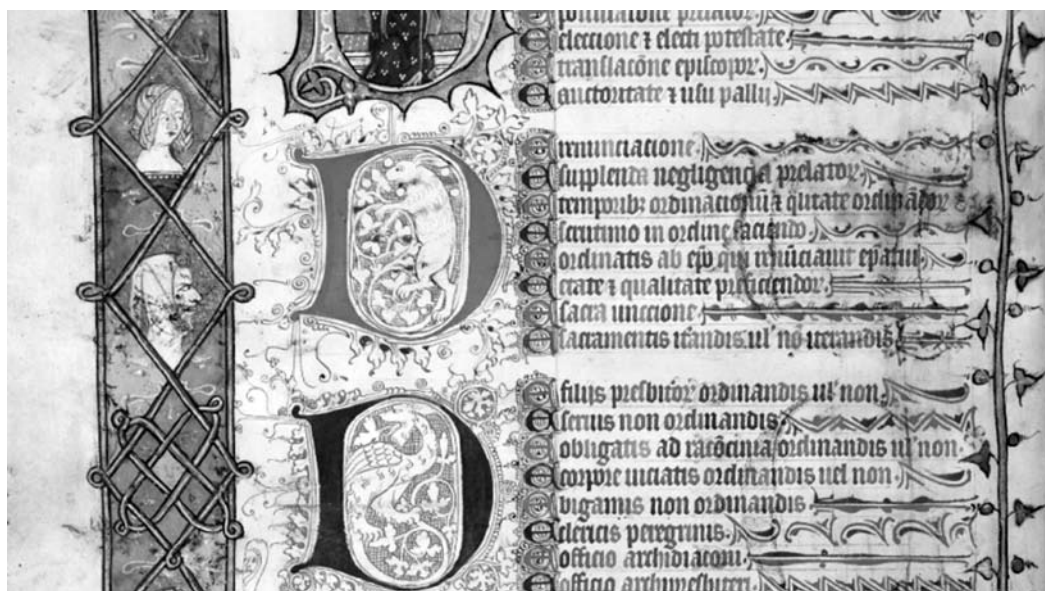 E eleccione ⁊ electi potestate
E translacōne episcopoꝝ
E auctoritate ⁊ usu pallii
D E renunciacione
E suplenda negligencia prelatoꝝ
E temporibꝫ ordinacionū ⁊ qlitate ordinādoꝝ
E scrutinio in ordine faciendo
E ordinatis ab epo qui renūciauit epatui
E etate ⁊ qualitate preficiendoꝝ
E sacra unccione
E sacramentis itandis ul' nō iterandis
D E filiis presbitoꝝ ordinandis ul' non
E seruis non ordinandis
E obligatis ad racōcinia ordinandis ul' non
E corpore uiciatis ordinandis uel non
E bigamis non ordinandis
E clericis peregrinis
E officio archidiaconi
E officio archipresbiteri